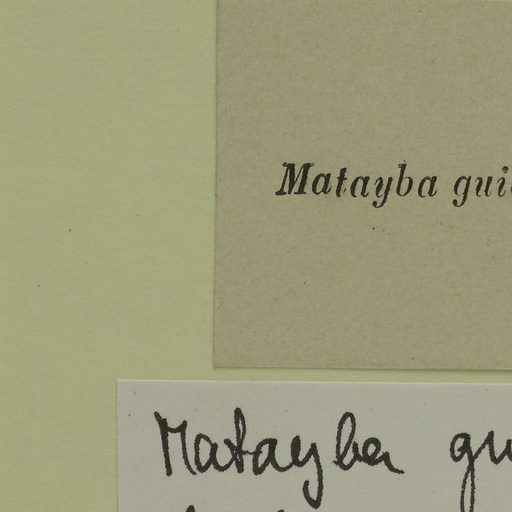 Matayba gui
Matayba gu